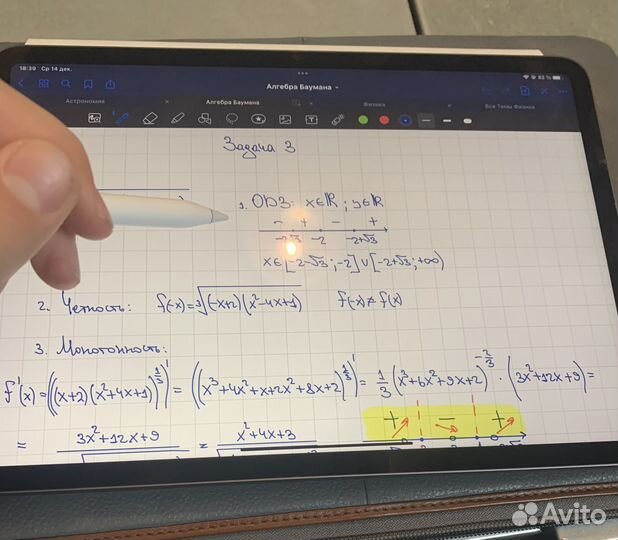 18:39 Ср 14 дек.
82 %
Алгебра Баумана
Астрономия
Алгебра Баумана
Физика
Все Темы Физика
Задача 3
1. ОДЗ: x∈ℝ; y∈ℝ
− + − +
-2-√3 -2 -2+√3
x∈[-2-√3; -2]∪[-2+√3; +∞)
2. Четность: f(-x)=³√((-x+2)(x²-4x+1)) f(-x)≠f(x)
3. Монотонность:
f'(x)=(((x+2)(x²+4x+1))^(1/3))'=((x³+4x²+x+2x²+8x+2)^(1/3))'=1/3(x³+6x²+9x+2)^(-2/3)·(3x²+12x+9)=
+ − +
= 3x²+12x+9 = x²+4x+3
Avito